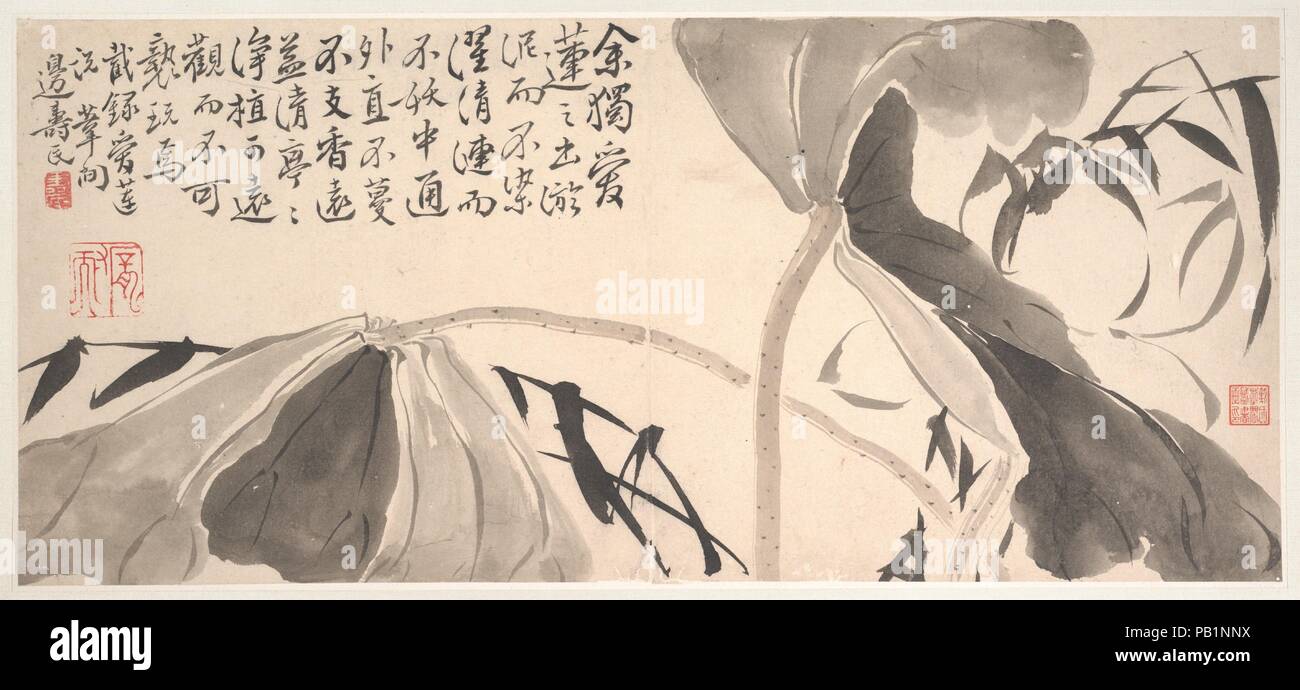 余獨愛
蓮之出淤
泥而不染
濯清漣而
不妖中通
外直不蔓
不支香遠
益清亭〻
淨植可遠
觀而不可
褻玩焉
截錄愛蓮
說 葦間
邊壽民
alamy
alamy
alamy
alamy
Image ID: PB1NNX
www.alamy.com